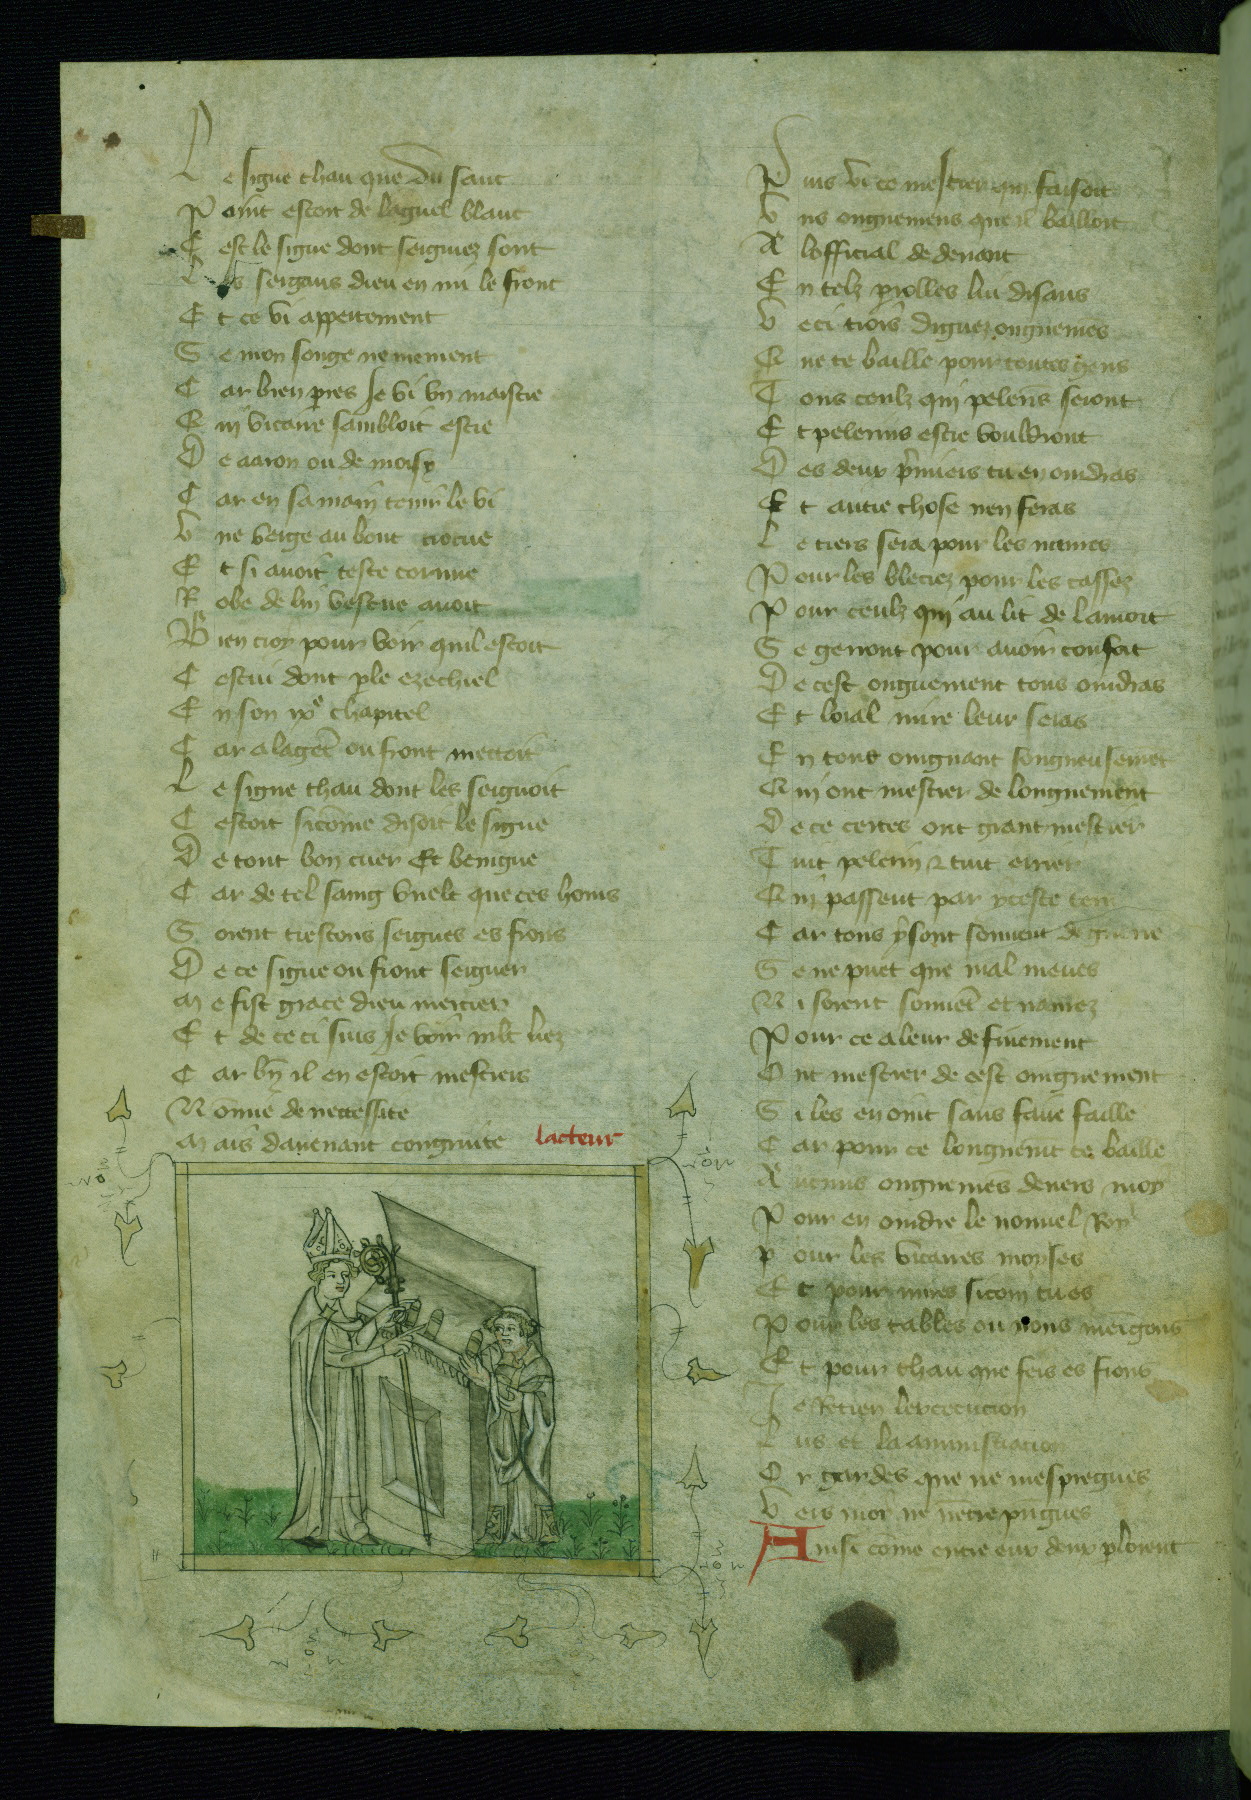 Le signe thau que du sanc
Paint estoit de laguel blanc
Cest le signe dont seigniez sont
Les sergans dieu en mi le front
Et ce vi appertement
Se mon songe ne me ment
Car bien pres Je vi vn maistre
Qui vicaire sambloit estre
De aaron ou de moisy
Car en sa main tenir le vi
Vne verge au bout crocue
Et si auoit teste cornue
Robe de lin vestue auoit
Bien croy pour voir quil estoit
Cestui dont ple ezechiel
En son ixe chapitel
Car a la gent ou front mettoit
Le signe thau dont les seignoit
Cestoit sicome disoit le signe
De tout bon cuer Et benigne
Car de tel saing vuelt que ces homs
Soient trestous seignes es frons
De ce signe ou front seigner
Me fist grace dieu mercier
Et de ce ci suis Je voir mlt liez
Car bn il en estoit mestiers
Non mie de necessite
Mais dauenant congruite lacteur
Puis vi ce mestier qui faisoit
Vns ongnemens que il bailloit
A lofficial de deuant
En telz parolles lui disans
Veci trois digues ongnemens
Que te baille pour toutes gens
Tous ceulz qui pelerins seront
Et pelerins estre vouldront
Des deux pmiers tu en oindras
Et autre chose nen feras
Le tiers sera pour les naures
Pour les bleciez pour les cassez
Pour ceulz qui au lit de la mort
Se gerront pour auoir confort
De cest onguement tous oindras
Et loial mire leur seras
En tous oingnant songneusemet
Qui ont mestier de longnement
De ce certes ont grant mestier
Tuit pelerin & tuit errier
Qui passent par yceste terre
Car tous y sont souuent de guerre
Se ne puet que mal meues
Ni soient souuet et naurez
Pour ce a leur definement
Ont mestier de cest oingnement
Si les en oint sans faire faille
Car pour ce longnemt te baille
Autres ongnemens deuers moy
Pour en oindre le nouuel Roy
Pour les vicaires moyses
Et pour mires sicom tu es
Pour les tables ou nous mengons
Et pour thau que feis es frons
Je Retien lexecucion
Lus et la aministracion
Or gardes que ne mespregnes
Vers moi ne nentrepngnes
Ainsi come entre eux deux ploient